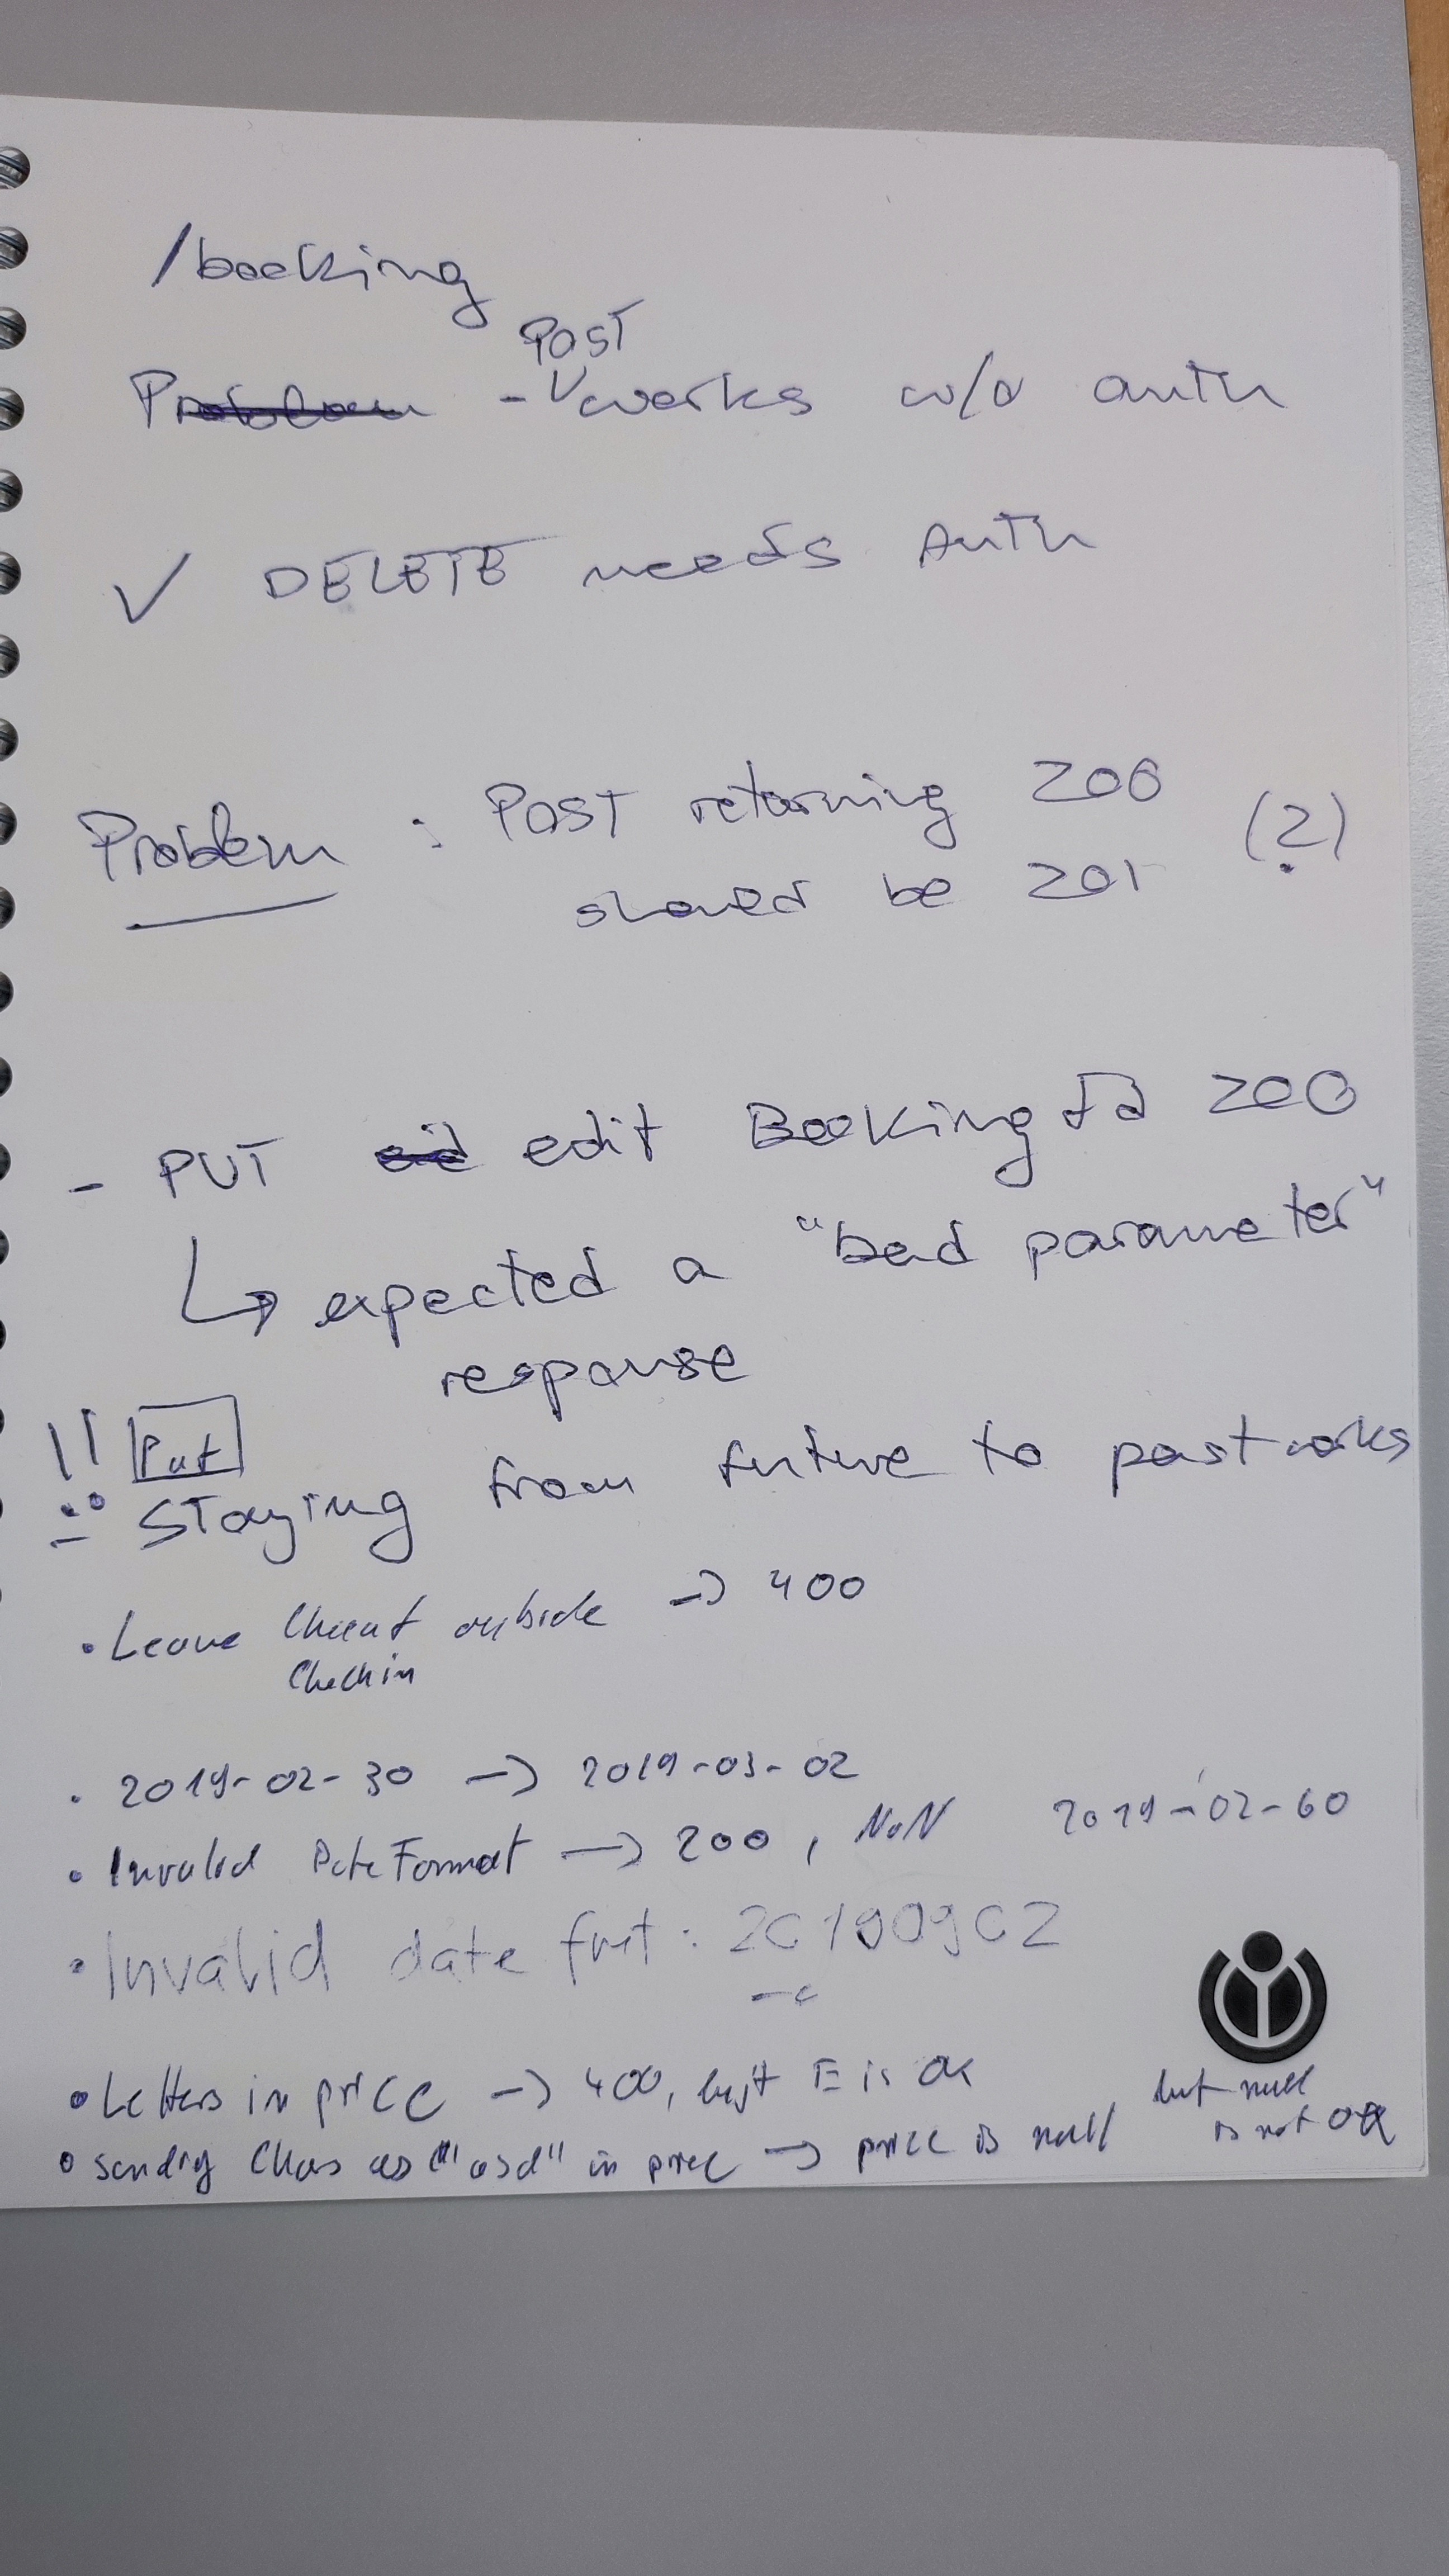 /booking
POST
Problem - works w/o auth
✓ DELETE needs Auth
Problem : POST returning 200 (?)
should be 201
- PUT edit BookingId 200
↳ expected a "bad parameter"
response
!! Put
- Staying from future to past works
• Leave outside → 400
Checkin
• 2019-02-30 → 2019-03-02
• Invalid Date Format → 200, NaN 2019-02-60
• Invalid date fmt: 20190902
• Letters in price → 400, but E is ok but null
is not ok
• Sending Chars as "asd" in price → price is null